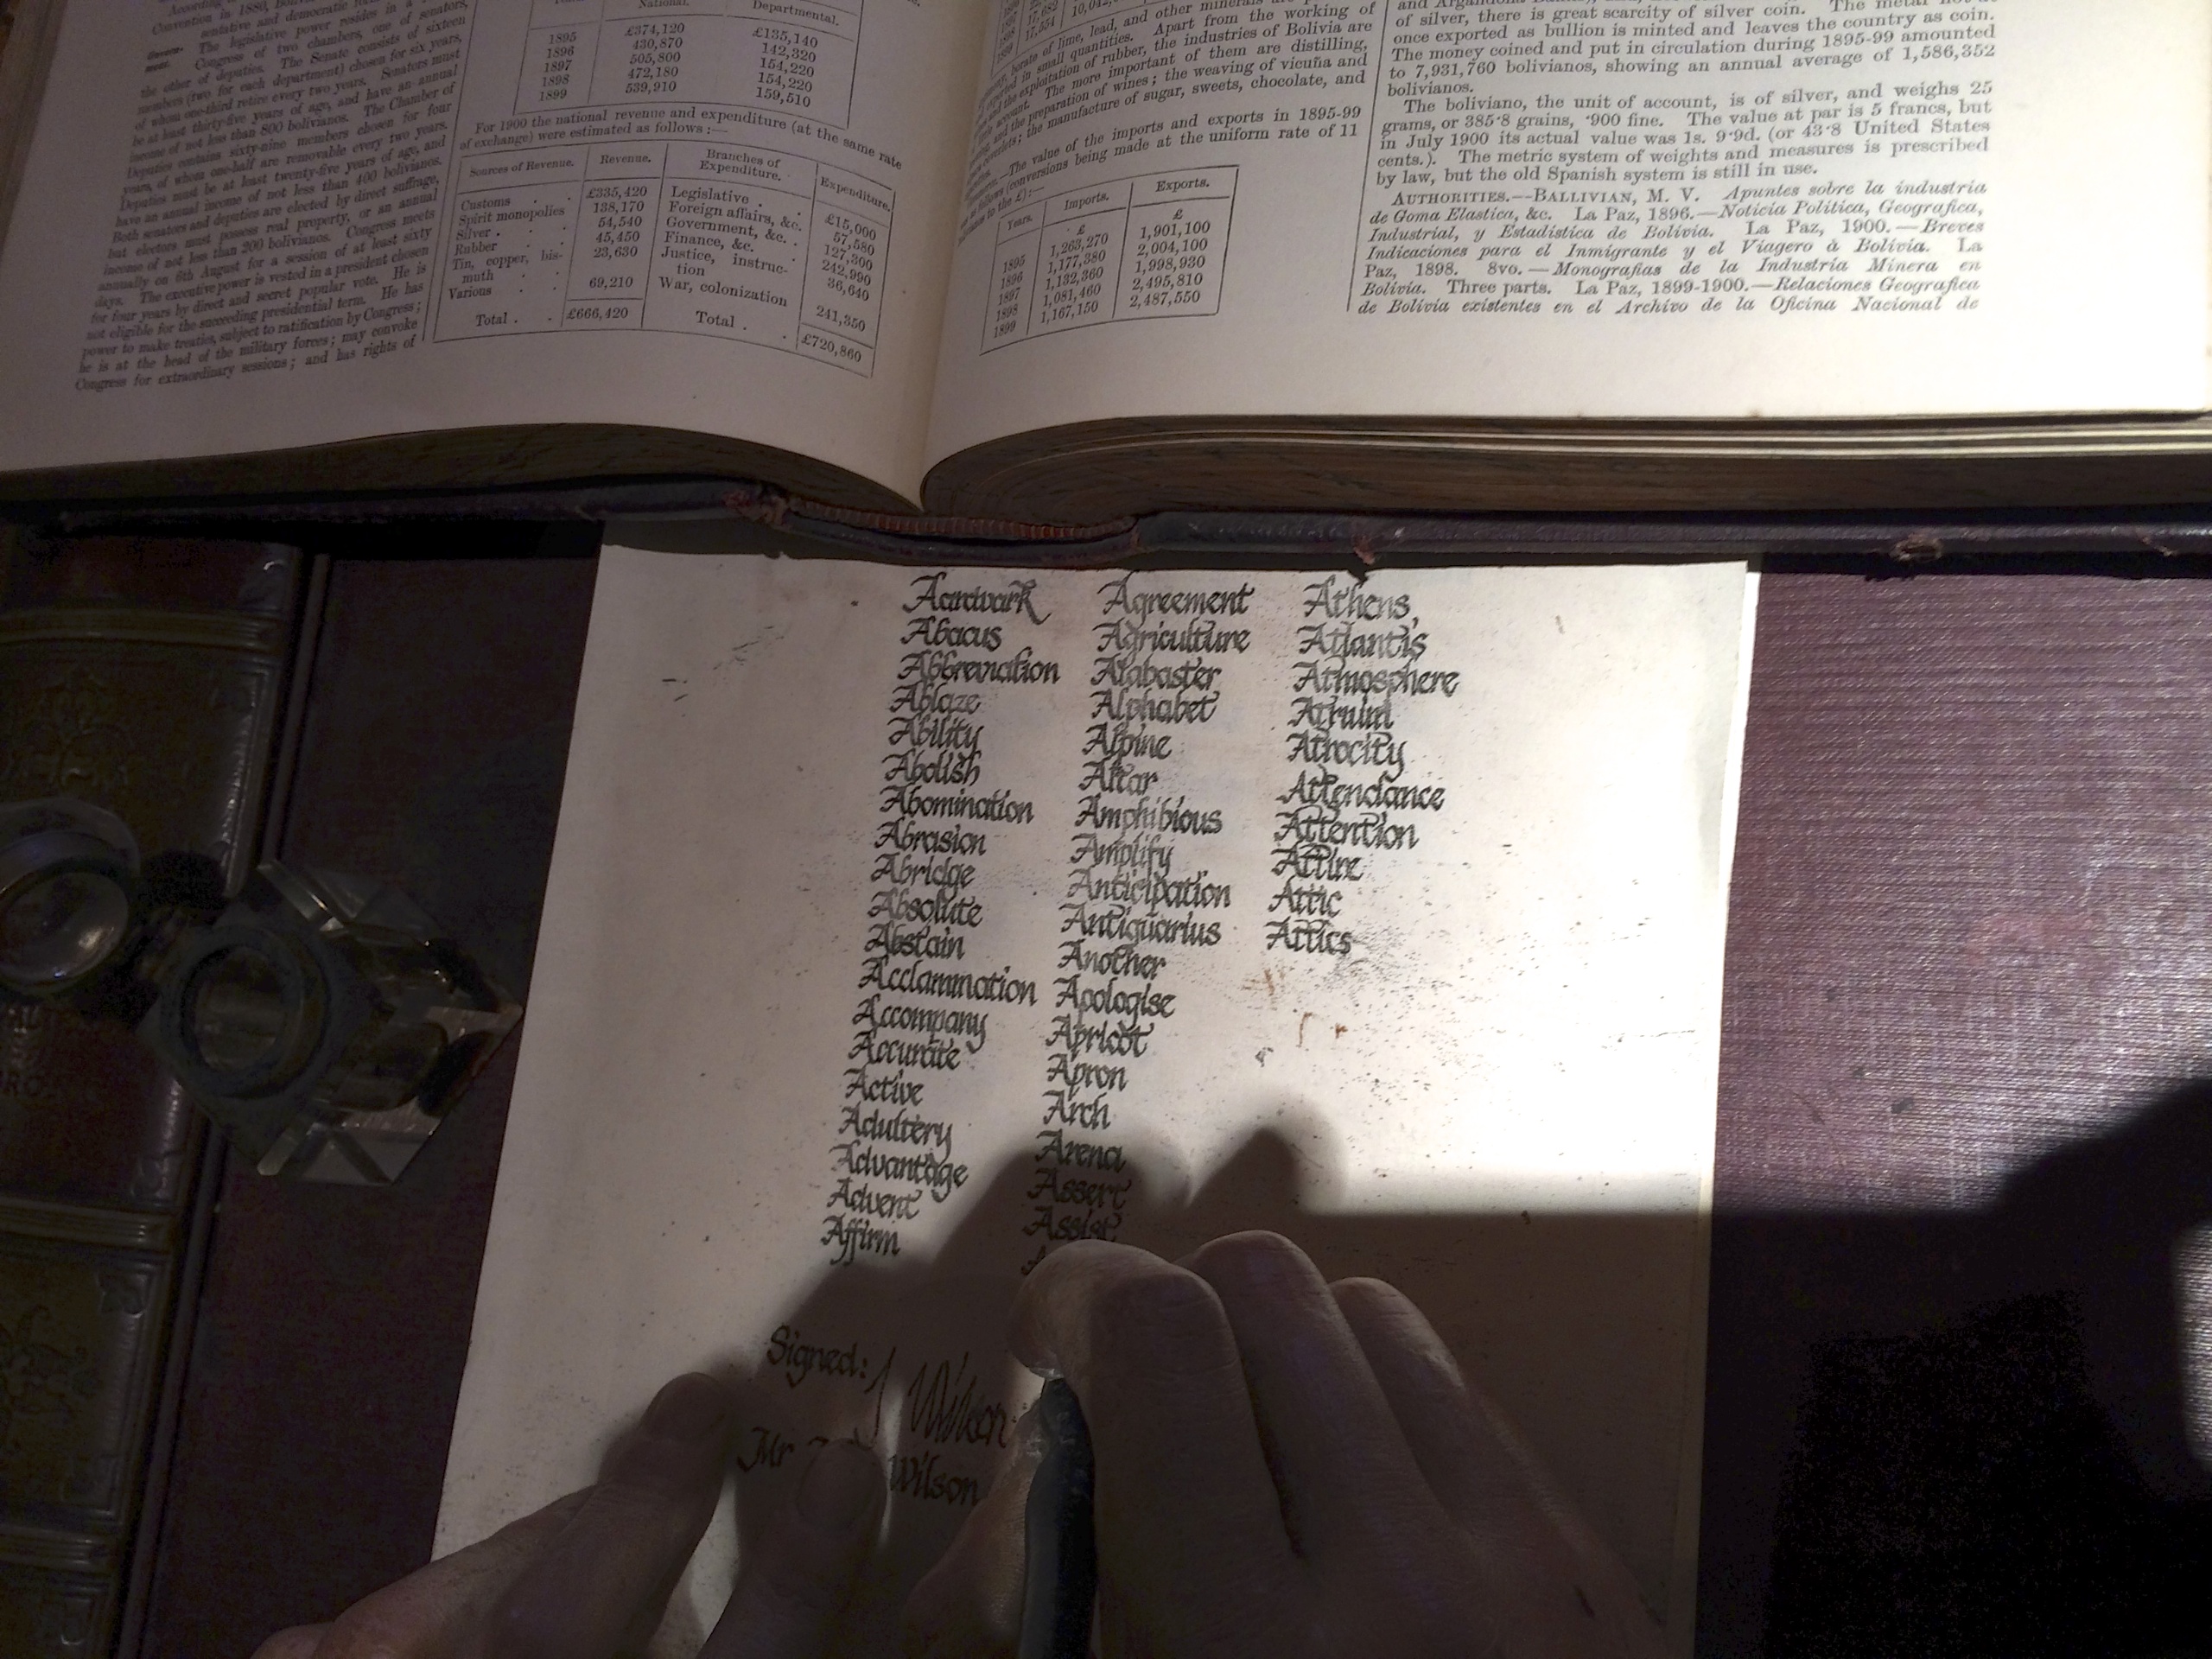 Convention in 1880,
sentative and democratic
The legislative power resides in a
Congress of two chambers, one of senators,
the other of deputies. The Senate consists of sixteen
members (two for each department) chosen for six years,
of whom one-third retire every two years. Senators must
be at least thirty-five years of age, and have an annual
income of not less than 800 bolivianos. The Chamber of
Deputies contains sixty-nine members chosen for four
years, of whom one-half are removable every two years.
Deputies must be at least twenty-five years of age, and
have an annual income of not less than 400 bolivianos.
Both senators and deputies are elected by direct suffrage,
but electors must possess real property, or an annual
income of not less than 200 bolivianos. Congress meets
annually on 6th August for a session of at least sixty
days. The executive power is vested in a president chosen
for four years by direct and secret popular vote. He is
not eligible for the succeeding presidential term. He has
power to make treaties, subject to ratification by Congress;
he is at the head of the military forces; may convoke
Congress for extraordinary sessions; and has rights of
National. Departmental.
1895 £374,120 £135,140
1896 430,870 142,320
1897 505,800 154,220
1898 472,180 154,220
1899 539,910 159,510
For 1900 the national revenue and expenditure (at the same rate
of exchange) were estimated as follows:—
Sources of Revenue. Revenue. Branches of Expenditure. Expenditure.
Customs . . £335,420 Legislative . . £15,000
Spirit monopolies 138,170 Foreign affairs, &c. 57,580
Silver . . 54,540 Government, &c. . 127,300
Rubber . . 45,450 Finance, &c. . 242,990
Tin, copper, bis- 23,630 Justice, instruc-
muth tion 36,640
Various . . 69,210 War, colonization 241,350
Total . . £666,420 Total . . £720,860
borate of lime, lead, and other minerals are
exported in small quantities. Apart from the working of
and the exploitation of rubber, the industries of Bolivia are
account. The more important of them are distilling,
and the preparation of wines; the weaving of vicuña and
the manufacture of sugar, sweets, chocolate, and
The value of the imports and exports in 1895-99
as follows (conversions being made at the uniform rate of 11
to the £):—
Years. Imports. Exports.
£ £
1895 1,263,270 1,901,100
1896 1,177,380 2,004,100
1897 1,132,360 1,998,930
1898 1,081,460 2,495,810
1899 1,167,150 2,487,550
of silver, there is great scarcity of silver coin. The metal
once exported as bullion is minted and leaves the country as coin.
The money coined and put in circulation during 1895-99 amounted
to 7,931,760 bolivianos, showing an annual average of 1,586,352
bolivianos.
The boliviano, the unit of account, is of silver, and weighs 25
grams, or 385·8 grains, ·900 fine. The value at par is 5 francs, but
in July 1900 its actual value was 1s. 9·9d. (or 43·8 United States
cents.). The metric system of weights and measures is prescribed
by law, but the old Spanish system is still in use.
AUTHORITIES.—BALLIVIAN, M. V. Apuntes sobre la industria
de Goma Elastica, &c. La Paz, 1896.—Noticia Politica, Geografica,
Industrial, y Estadistica de Bolivia. La Paz, 1900.—Breves
Indicaciones para el Inmigrante y el Viagero à Bolivia. La
Paz, 1898. 8vo.—Monografias de la Industria Minera en
Bolivia. Three parts. La Paz, 1899-1900.—Relaciones Geografica
de Bolivia existentes en el Archivo de la Oficina Nacional de
Aardvark
Abacus
Abbreviation
Ablaze
Ability
Abolish
Abomination
Abrasion
Abridge
Absolute
Abstain
Acclammation
Accompany
Accurate
Active
Adultery
Advantage
Advent
Affirm
Agreement
Agriculture
Alabaster
Alphabet
Alpine
Altar
Amphibious
Amplify
Anticipation
Antiquarius
Another
Apologise
Apricot
Apron
Arch
Arena
Assert
Assist
Athens,
Atlantis
Atmosphere
Atruim
Atrocity
Attendance
Attention
Attire
Attic
Attics
Signed: J Wilson
Mr Wilson